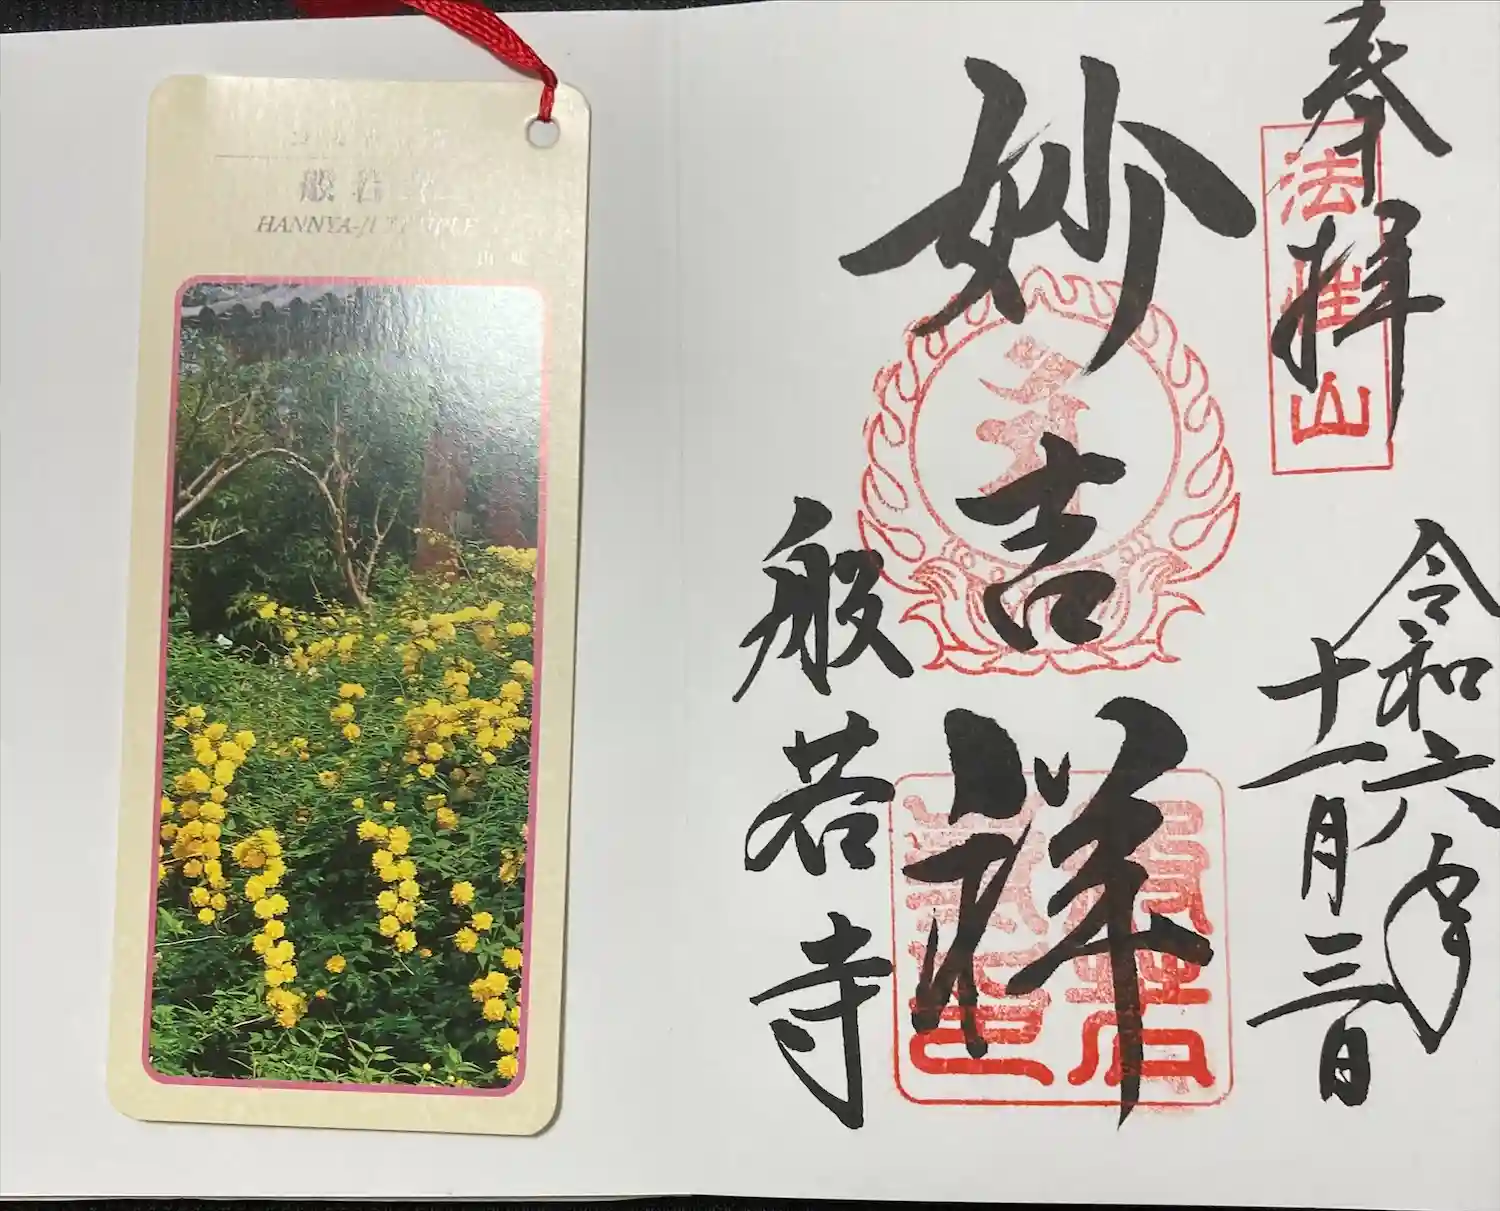 般若
HANNYA-JI TEMPLE
山吹
奉拝
法性山
令和六年
十一月三日
妙吉祥
般若寺